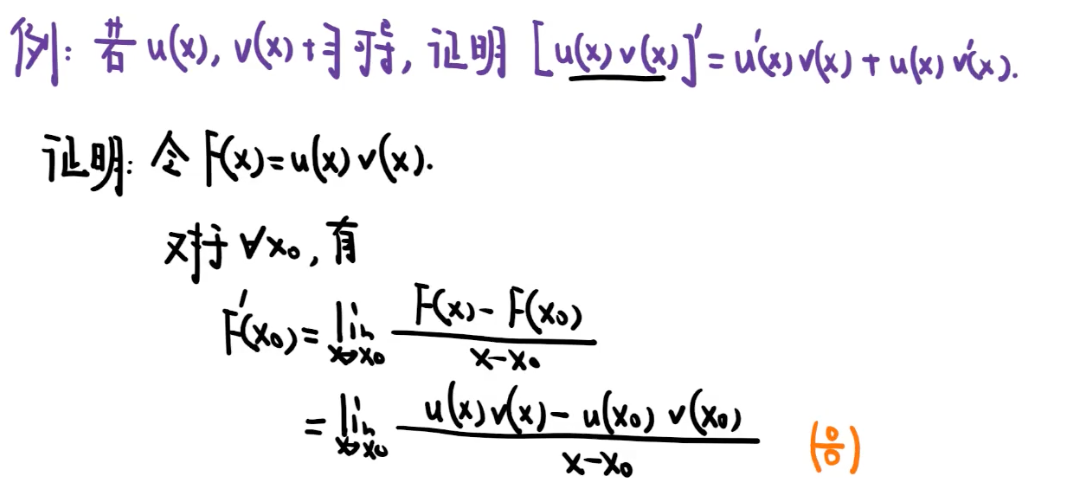 例: 若 u(x), v(x) 均可导, 证明 [u(x) v(x)]' = u'(x) v(x) + u(x) v'(x).
证明: 令 F(x) = u(x) v(x).
对于 ∀x₀, 有
F'(x₀) = lim_{x→x₀} \frac{F(x) - F(x₀)}{x - x₀}
= lim_{x→x₀} \frac{u(x) v(x) - u(x₀) v(x₀)}{x - x₀} (\frac{0}{0})